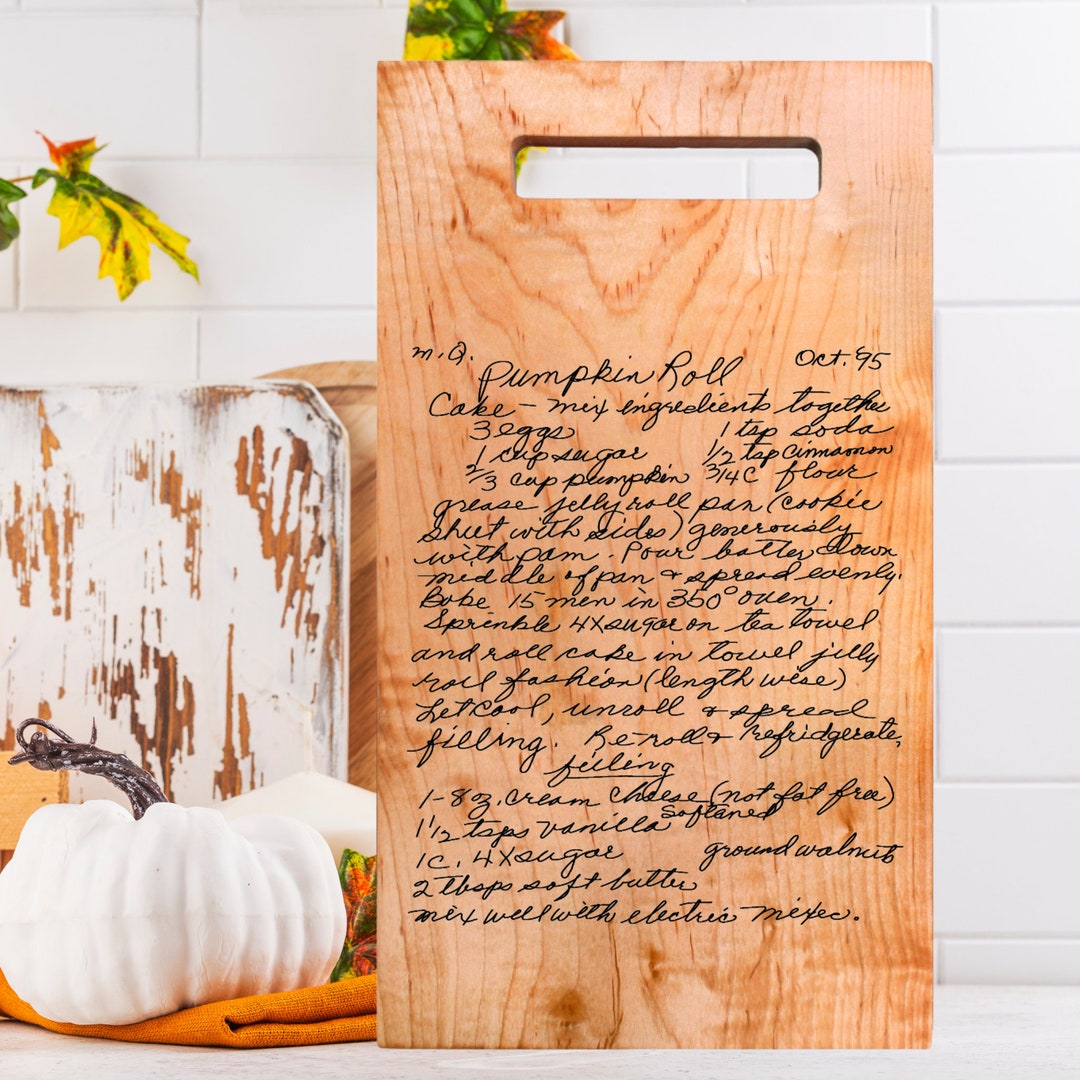 m.Q. Oct. '95
Pumpkin Roll
Cake - mix ingredients together
3 eggs 1 tsp soda
1 cup sugar 1/2 tsp cinnamon
2/3 cup pumpkin 3/4 C flour
grease jelly roll pan (cookie
sheet with sides) generously
with pam. Pour batter down
middle of pan & spread evenly.
Bake 15 min in 350° oven.
Sprinkle 4X sugar on tea towel
and roll cake in towel jelly
roll fashion (length wise)
Let cool, unroll & spread
filling. Re-roll & refridgerate,
filling
1-8 oz. cream cheese (not fat free)
softened
1 1/2 tsps vanilla
1 c. 4X sugar ground walnuts
2 tbsps soft butter
mix well with electric mixer.